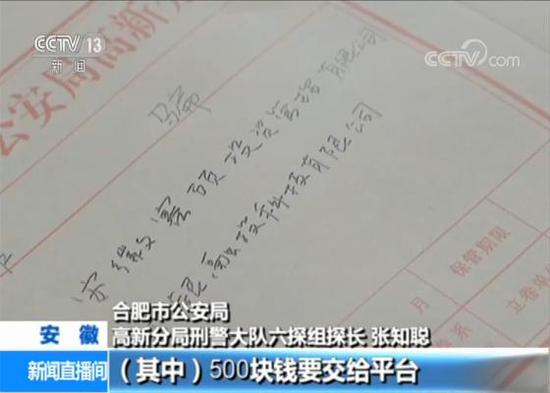 CCTV 13
新闻
CCTV.com
公安局高新分
马帝
安徽塞顾投资管理有限公司
科技有限公司
保管期限
立卷单
年
月
安徽
合肥市公安局
高新分局刑警大队六探组探长 张知聪
新闻直播间
（其中）500块钱要交给平台